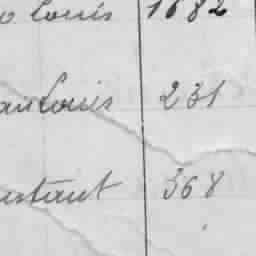 o Louis 1682
an Louis 231
nstant 368